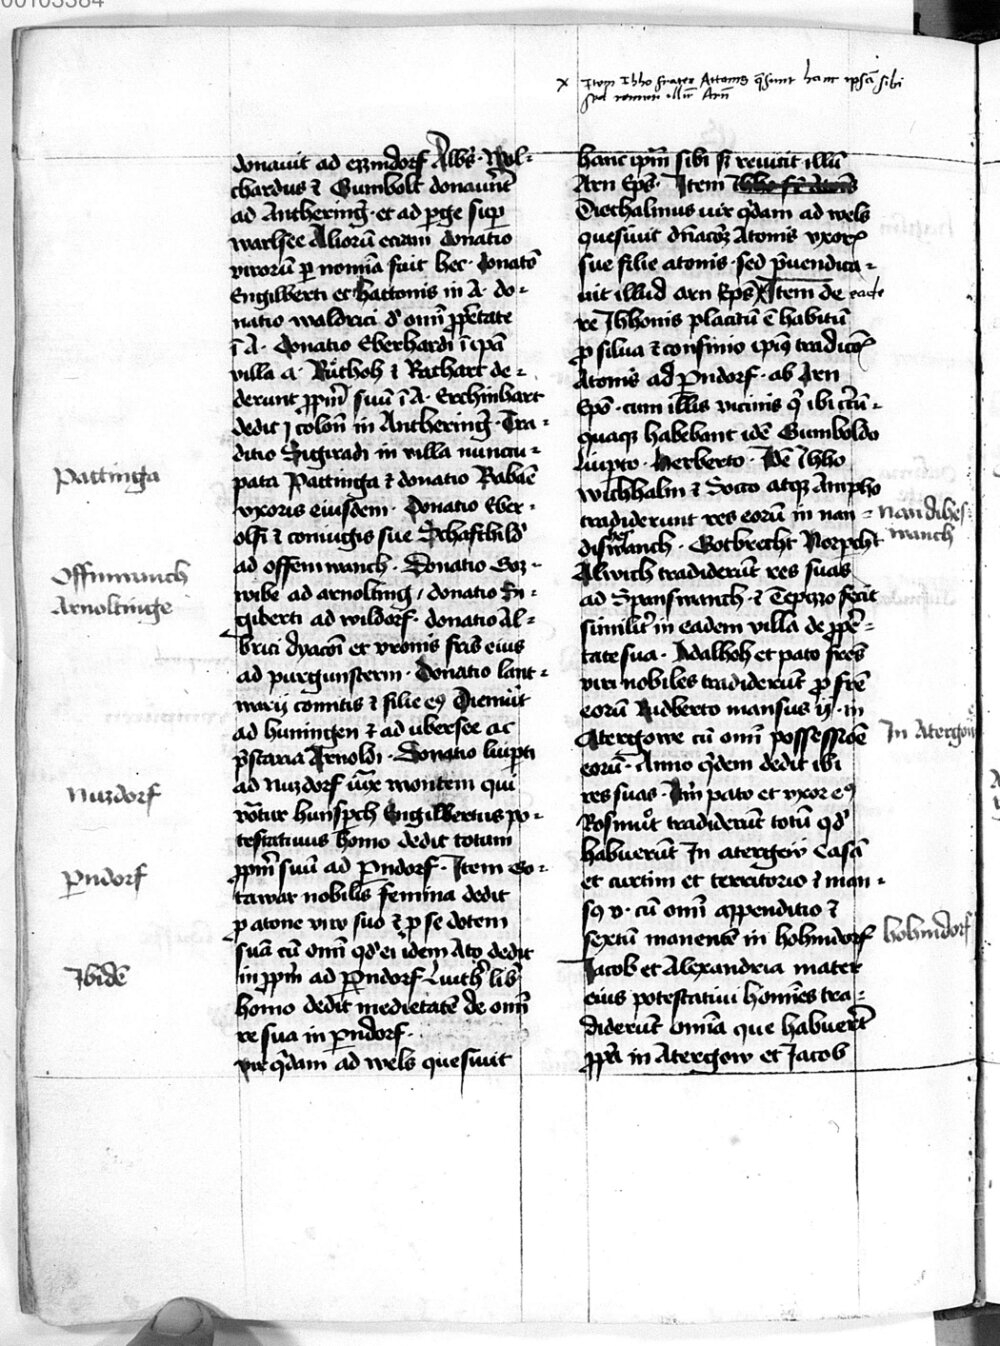 x Item Ihho frater Attonis q̄siuit hanc ipsā sibi
sed reuicit illū Arn
donauit ad ezzindorf Albs̄ · Wal-
chardus ⁊ Gumbolt donauer̄t
ad Anthering · et ad p̄ge sup̄
warlsee Aliorū eciam donatio
virorū p nomīa fuit hec · donato͞
Engilberti et hattonis in A · do-
natio waldrici d' om̄i ꝓp̄etate
ī A · Donatio Eberhardi ī ipā
villa a · Růthoh ⁊ Rathart de-
derunt ꝓpm̄ suū ī A · Erchinhart
dedit j colon̄ in Antherinḡ · Tra-
ditio Sigiradi in villa nuncu-
pata Pattinga ⁊ donatio Rabaē
vxoris eiusdem · Donatio Eber-
olfi ⁊ coniugis sue Schafthild'
ad offemwanch · Donatio Goz-
wibe ad arnolting / donatio Si-
giberti ad wildorf · donatio Al-
brici dyacoī et vronis fris̄ eius
ad purgunsterm · Donatio lant-
warij comitis ⁊ filie eꝰ Diemůt
ad huningen ⁊ ad ubersee ac
p̄staria Arnoldi · Donatio liupti
ad Nuzdorf iux̄ montem qui
vōtur hunsp̄ch Engilbertus po-
testatiuus homo dedit totum
ꝓpm̄ suū ad Pndorf · Item Co-
tawar nobilis femina dedit
ꝓ atone viro suo ⁊ ꝓ se dotem
suā cū om̄i qd' ei idem Ato dedit
in ꝓpm̄ ad Pndorf Liuth' lib'
homo dedit medietatē de om̄i
re sua in Pndorf ·
vir q̄dam ad wels quesiuit
Pattinga
Offinwanch
Arnoltinge
Nuzdorf
Pndorf
Ibidē
hanc ipm̄ sibi sz reuicit illū
Arn Ep̄s · Item
Diethalmus vir q̄dam ad wels
quesiuit Atonis vxor
sue filie atonis · sed p̄uendica-
uit illud Arn Ep̄s x Item de eadē
re Ihhonis placitū ē habitū
ꝓ silua ⁊ confinio ipiꝰ tradicō͞
Atonis ad Pndorf · ab Arn
Ep̄o · cum illis vicinis q̄ ibi cir̄cū-
quaqꝫ habebant idē Gumboldo
Liupto · Herberto · Idē Ihho
wichhalm ⁊ Socco atqꝫ Ampho
tradiderunt res eorū in nan-
dishewanch · Gotbrecht Norpcht
Alwich tradiderūt res suas
ad Spanswanch · ⁊ Tepizzo fecit
similit̄ in eadem villa de ꝓp̄e-
tate sua · Adalhoh et pato fres̄
viri nobiles tradiderūt ꝓ frē
eorū Rudberto mansus ij · in
Atergowe cū om̄i possessiōe
eorū · Anno q̄dem dedit ibi
res suas · Itm̄ pato et vxor eꝰ
Rosmůt tradiderūt totū qd'
habuerūt In atergew Casā
et curtim et territorio ⁊ man-
sꝰ v · cū om̄i appenditio ⁊
sextū manentē in hohindorf
Jacob et Alexandria mater
eius potestatiui homīes tra-
diderūt omīa que habuer̄t
ꝓpā in Atergow et Jacob
nandihes-
wanch
In Atergow
hohindorf